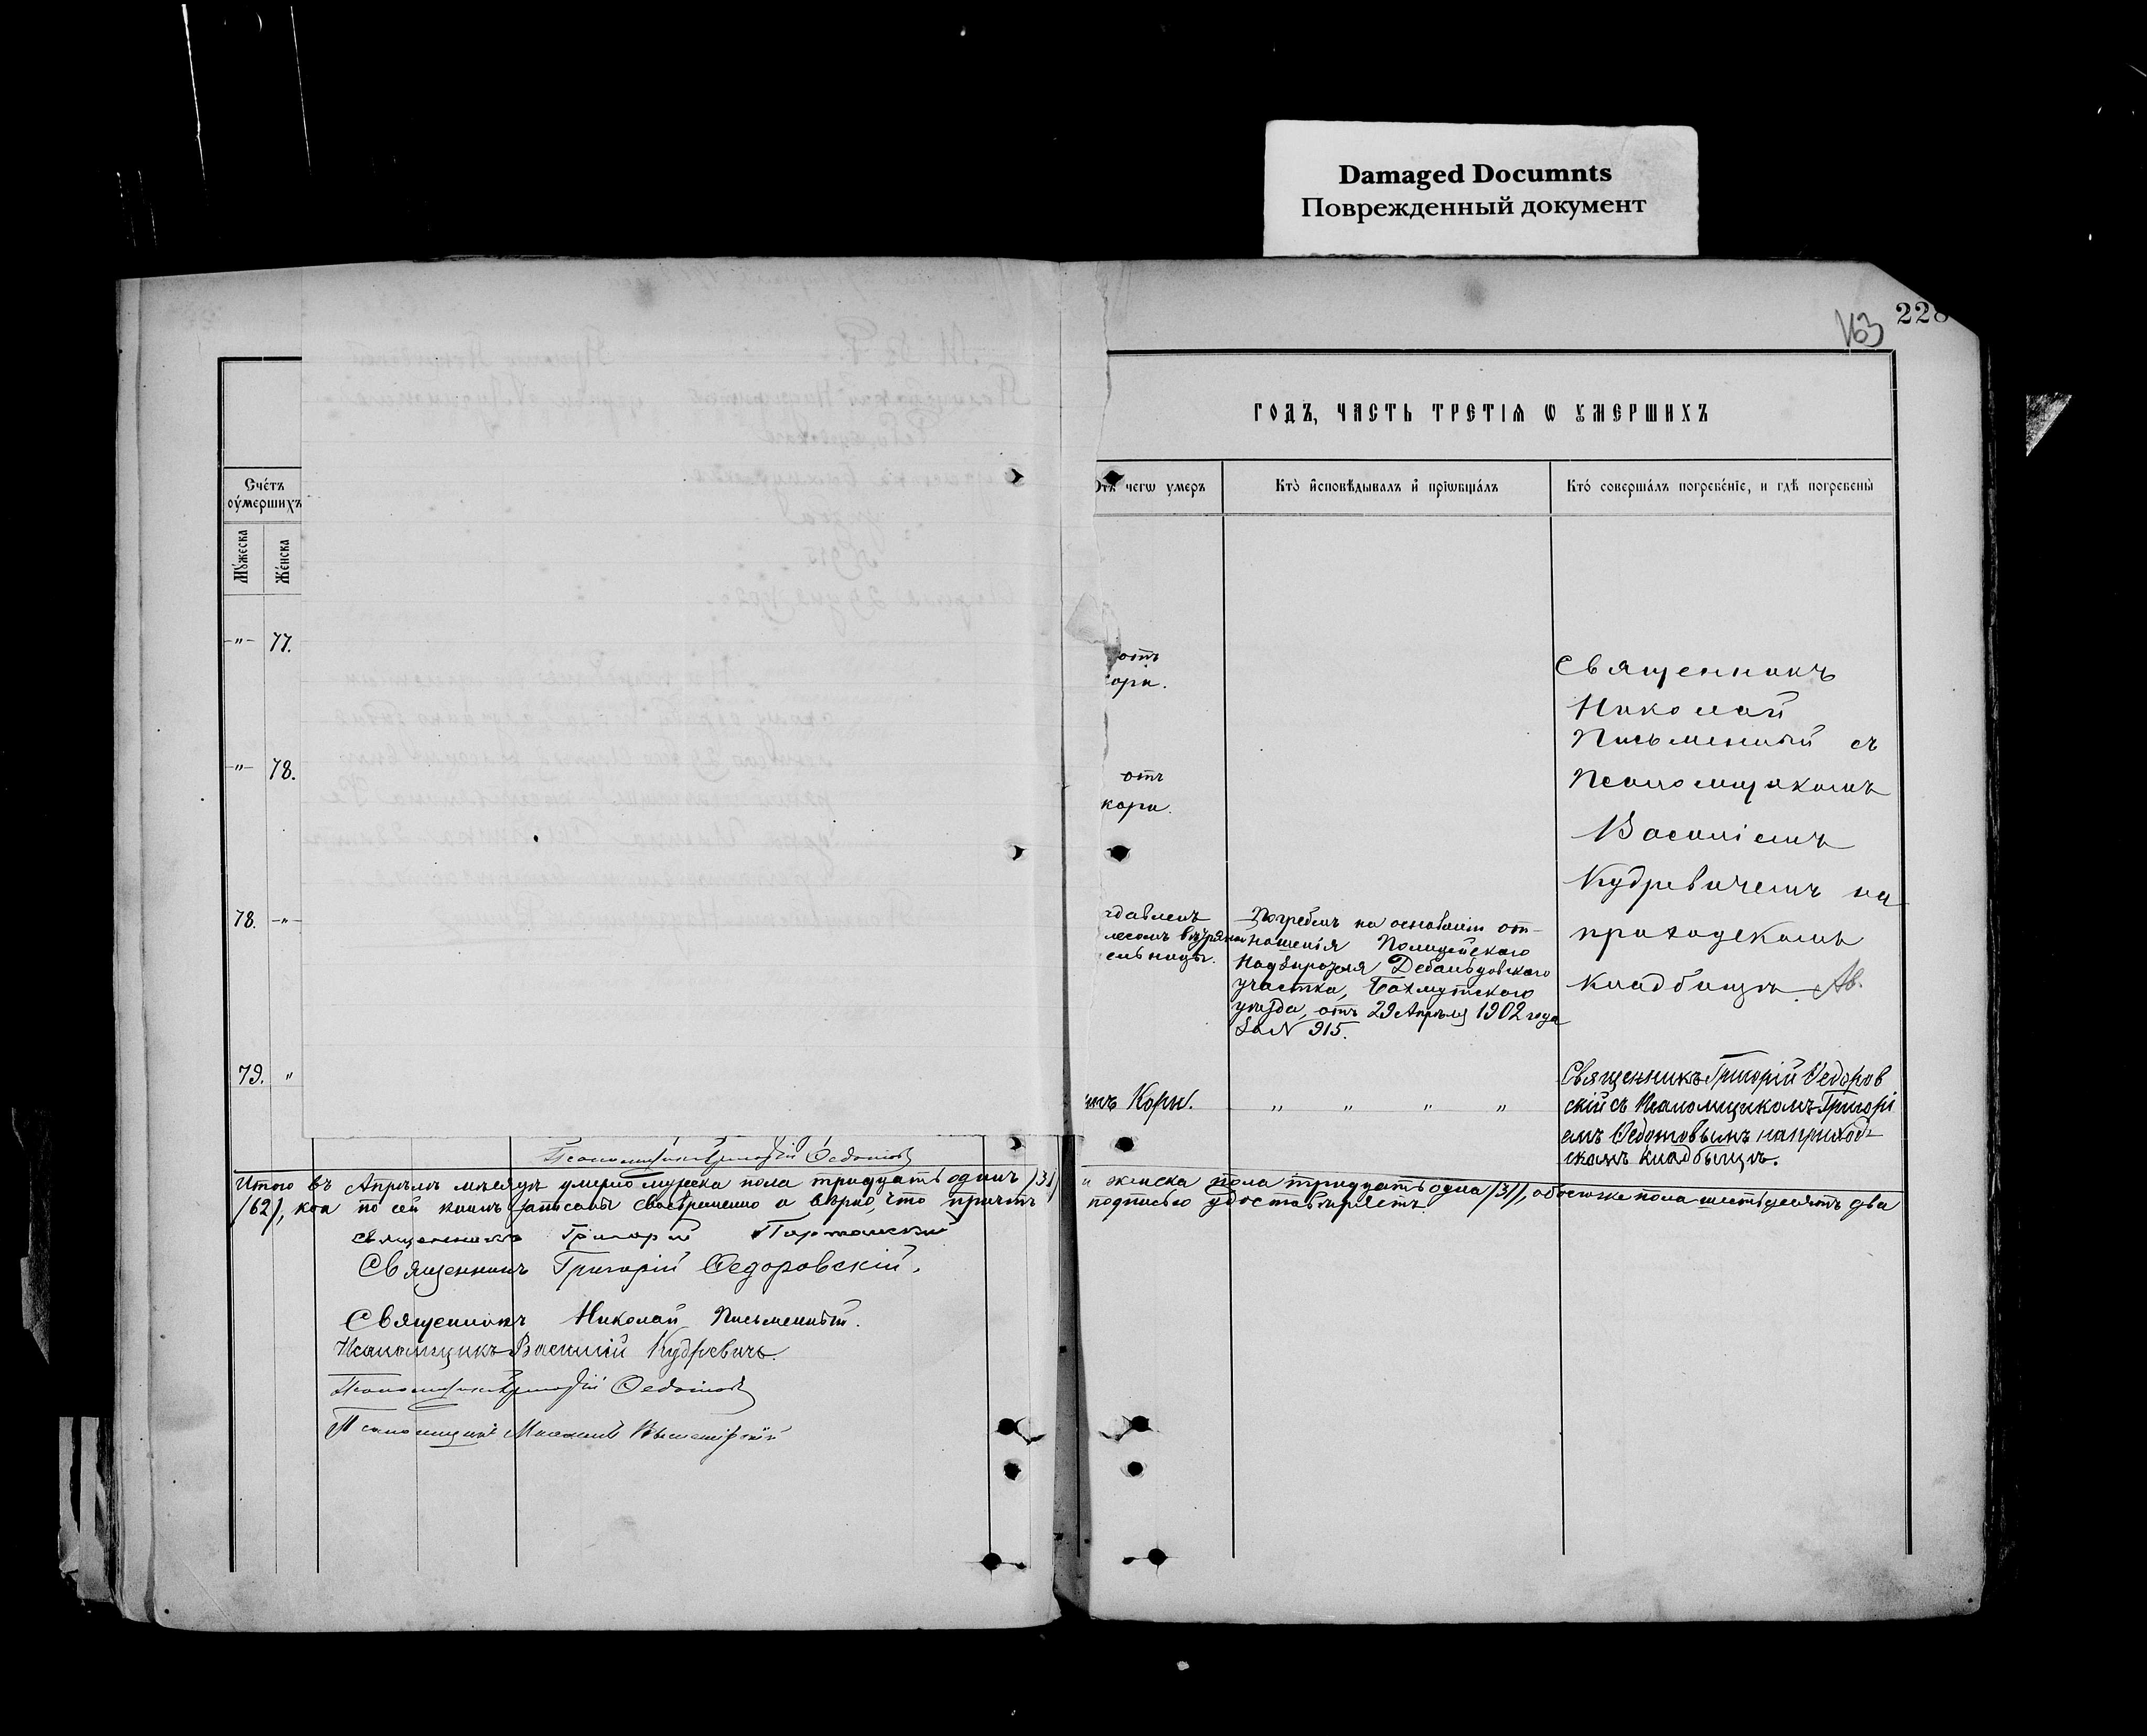 Damaged Documnts
Поврежденный документ
228
163
ГОДЪ, ЧАСТЬ ТРЕТІѦ Ѡ ОУМЕРШИХЪ
Сче́тъ
оу́мершихъ
Му́жеска
Же́нска
Отъ чегѡ умеръ
Кто̀ и҆сповѣ́дывалъ и҆ прїѡбща́лъ
Кто́ соверша́лъ погребе́нїе, и гдѣ̀ погребены̀
-"- 77.
отъ
кори.
-"- 78.
отъ
кори.
Священникъ
Николай
Письменный съ
Псаломщикомъ
Василіемъ
Кудревичемъ на
приходскомъ
кладбищѣ.
78. -"-
Погребенъ на основаніи от-
ношенія Полицейскаго
Надзирателя Дебальцовскаго
участка, Бахмутскаго
уѣзда, отъ 29 Апрѣля 1902 года
за № 915.
79. "
Кори.
" " " "
Священникъ Григорій Ѳедоров
скій съ Псаломщикомъ Григорі
емъ Ѳедотовымъ на приход-
скомъ кладбищѣ.
Псаломщикъ Григорій Ѳедотовъ
Итого въ Апрѣлѣ мѣсяцѣ умерло мужеска пола тридцать одинъ /31/ и женска пола тридцать одна /31/, обоего же пола шестьдесятъ два
/62/, кои по сей книгѣ записаны своевременно и вѣрно, что причтъ подписью удостовѣряетъ.
Священникъ Григорій
Священникъ Григорій Ѳедоровскій.
Священникъ Николай Письменный.
Псаломщикъ Василій Кудревичъ.
Псаломщикъ Григорій Ѳедотовъ
Псаломщикъ